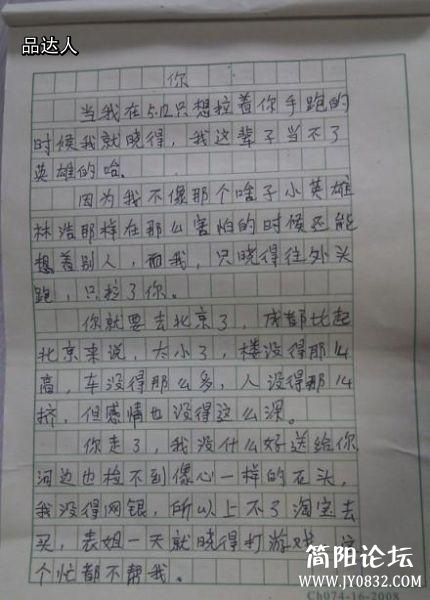 品达人
你
当我在5.12只想拉着你手跑的
时候我就晓得，我这辈子当不了
英雄的哈。
因为我不像那个啥子小英雄
林浩那样在那么害怕的时候还能
想着别人，而我，只晓得往外头
跑，只拉了你。
你就要去北京了，成都比起
北京来说，太小了，楼没得那么
高，车没得那么多，人没得那么
挤，但感情也没得这么深。
你走了，我没什么好送给你
河边也捡不到像心一样的石头，
我没得网银，所以上不了淘宝去
买，表姐一天就晓得打游戏，这
个忙都不帮我。
简阳论坛
www.JY0832.com
Ch074-16-2008